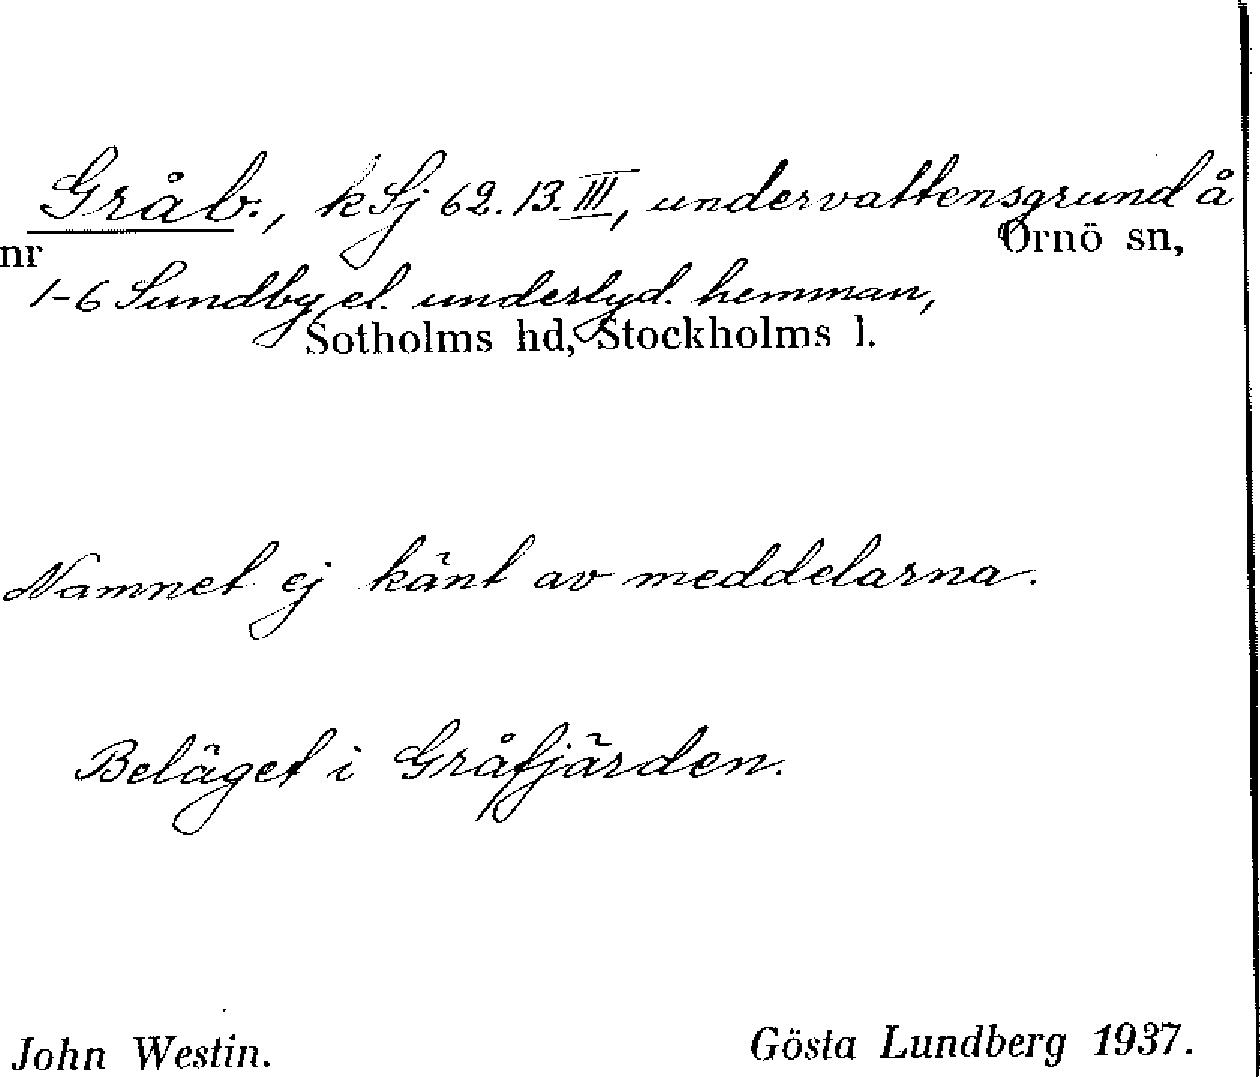 Gråb., k Sj 62.13.III, undervattensgrund å
nr Ornö sn,
1-6 Sundby el. underlyd. hemman,
Sotholms hd, Stockholms l.
Namnet ej känt av meddelarna.
Beläget i Gråfjärden.
John Westin. Gösta Lundberg 1937.